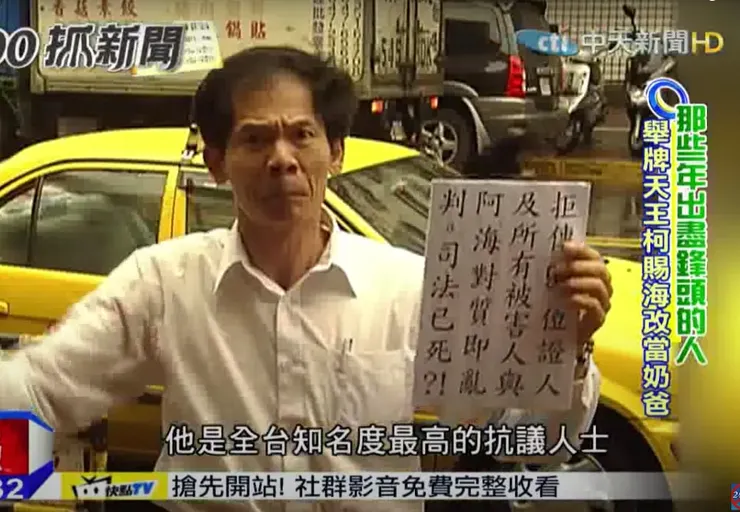 香菇素餃
鍋貼
00抓新聞
cti 中天新聞HD
那些年出盡鋒頭的人
舉牌天王柯賜海改當奶爸
拒傳
位證人
及所有被害人與
阿海對質即亂
判。司法已死?!
他是全台知名度最高的抗議人士
快點TV
搶先開站! 社群影音免費完整收看
32